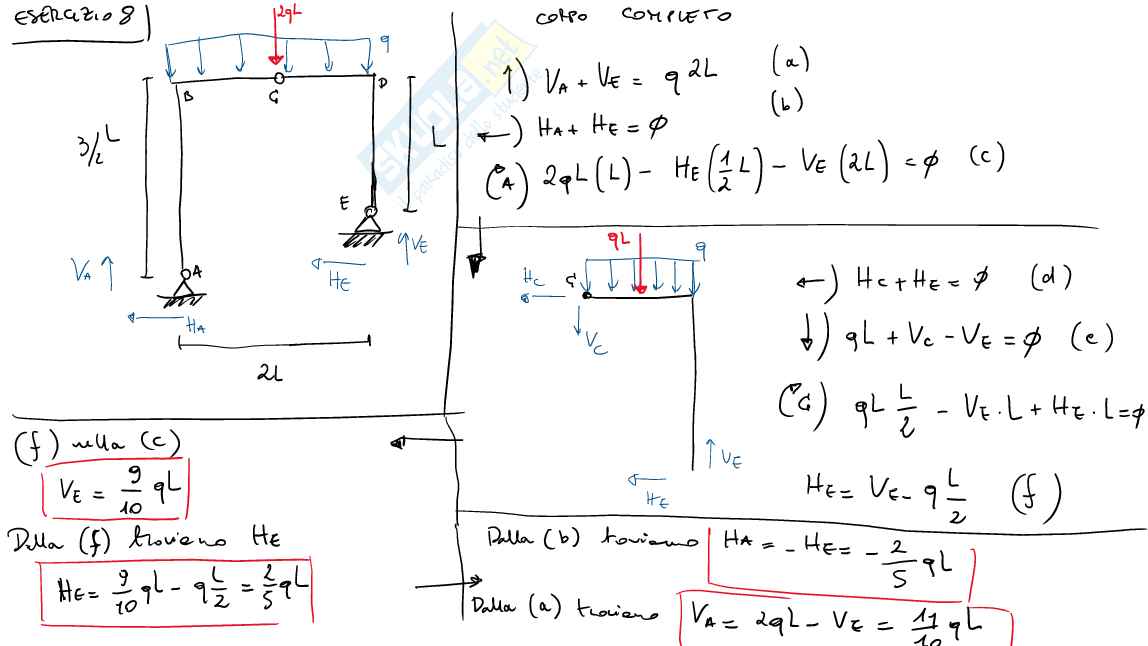 ESERCIZIO 8
2qL
q
B
G
D
3/2 L
L
E
V_A
A
H_A
H_E
V_E
2L
skuola.net
CORPO COMPLETO
↑) V_A + V_E = q 2L (a)
←) H_A + H_E = ∅ (b)
A) 2qL (L) - H_E (1/2 L) - V_E (2L) = ∅ (c)
qL
q
H_C
G
V_C
V_E
H_E
←) H_C + H_E = ∅ (d)
↓) qL + V_C - V_E = ∅ (e)
G) qL L/2 - V_E · L + H_E · L = ∅
H_E = V_E - q L/2 (f)
(f) nella (c)
V_E = 9/10 qL
Dalla (f) troviamo H_E
H_E = 9/10 qL - q L/2 = 2/5 qL
Dalla (b) troviamo H_A = - H_E = - 2/5 qL
Dalla (a) troviamo V_A = 2qL - V_E = 11/10 qL